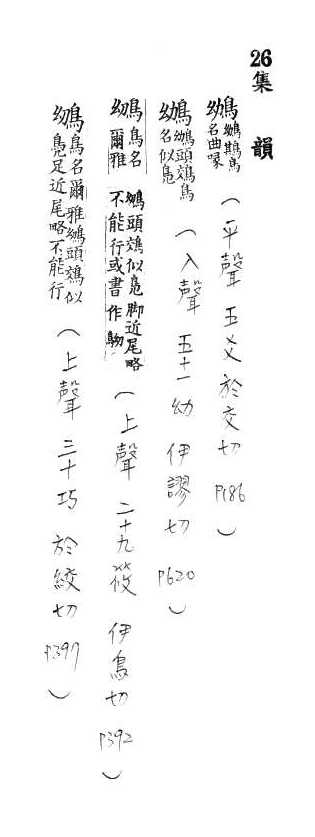 26集 韻
鴢鴢鷯鳥名曲喙(平聲 五爻於交切 P186)
鴢鴢頭鵁鳥名似鳧(入聲 五十一幼 伊謬切 P620)
鴢鳥名爾雅鴢頭鵁似鳧脚近尾略不能行或書作(上聲 二十九筱 伊鳥切 P392)
鴢鳥名爾雅鴢頭鵁似鳧足近尾略不能行(上聲 三十巧 於絞切 P397)